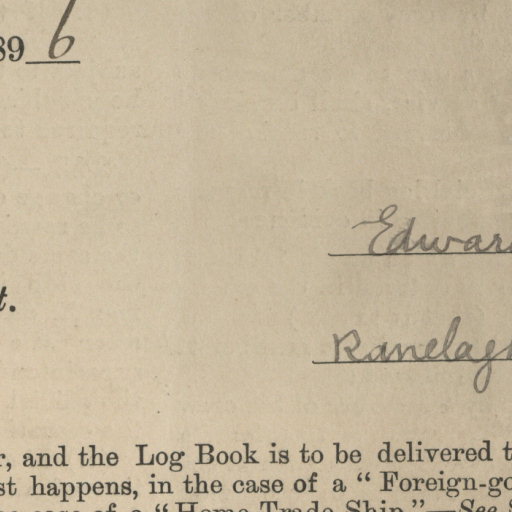 896
Edwar
t.
Ranelag
r, and the Log Book is to be delivered t
st happens, in the case of a “ Foreign-go
case of a “ Home Trade Ship,”—See S